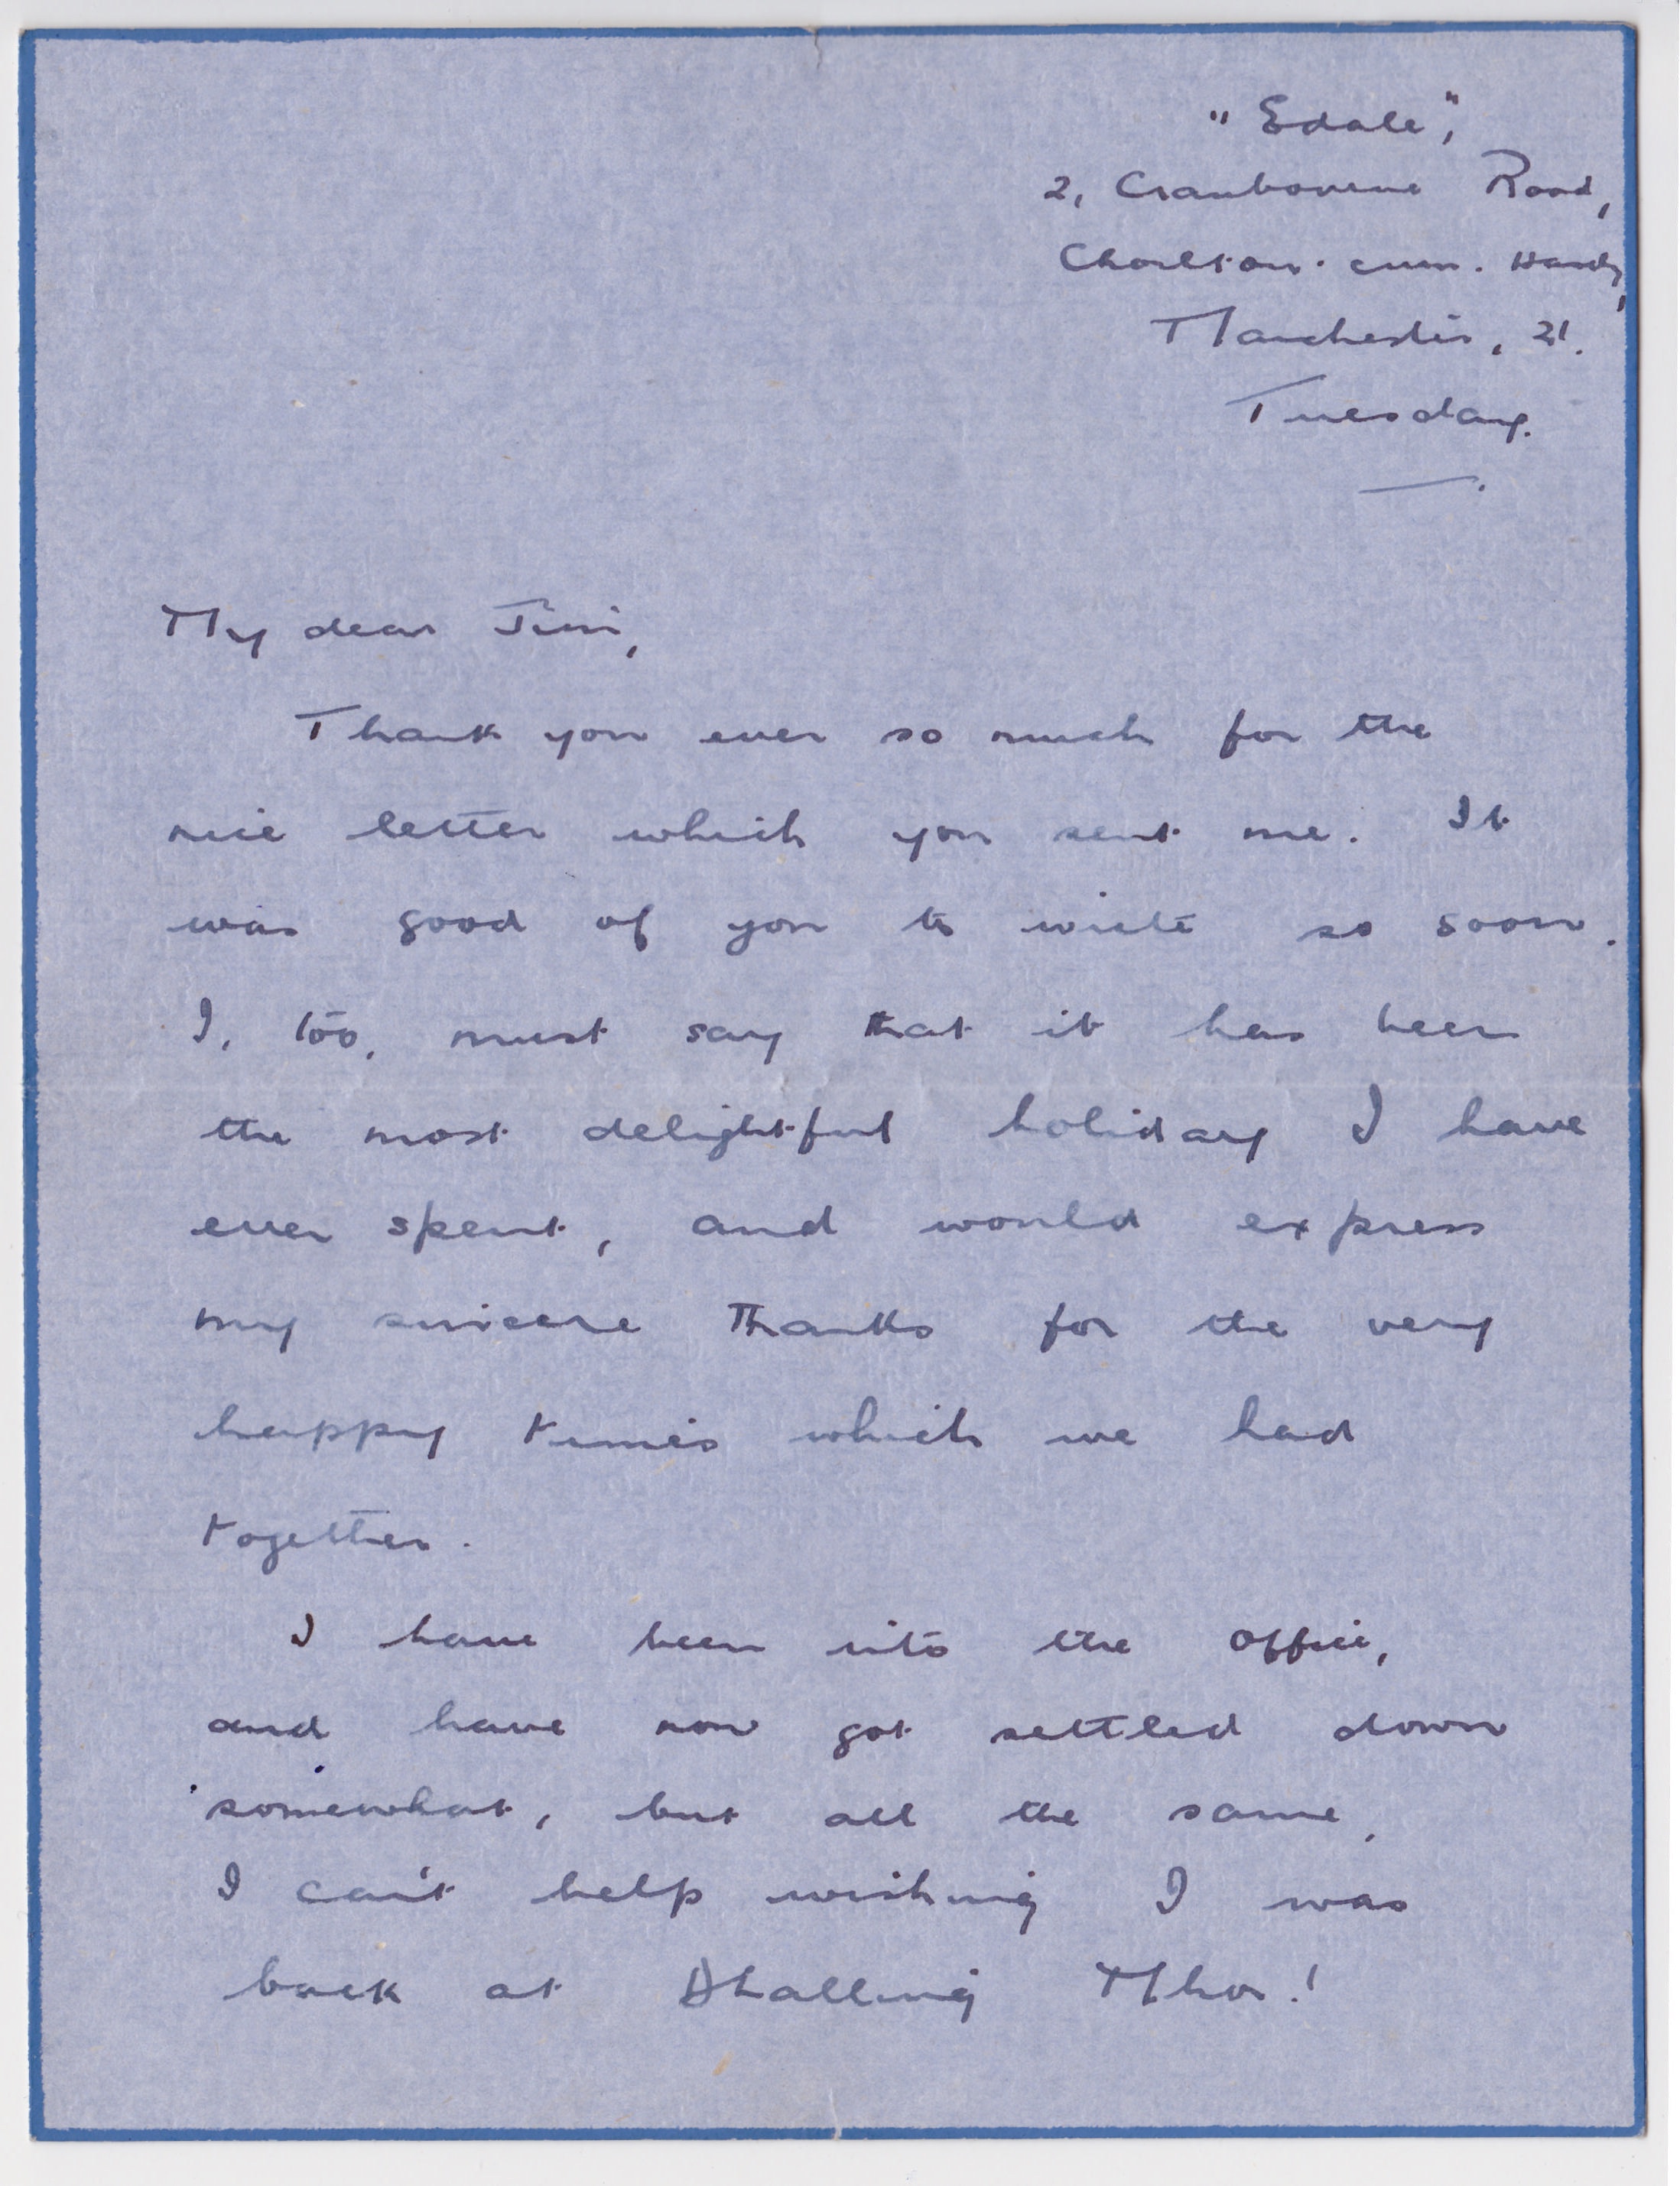 "Edale",
2, Cranbourne Road,
Chorlton-cum-Hardy,
Manchester, 21.
Tuesday.
My dear Jim,
Thank you ever so much for the
nice letter which you sent me. It
was good of you to write so soon.
I, too, must say that it has been
the most delightful holiday I have
ever spent, and would express
my sincere thanks for the very
happy times which we had
together.
I have been into the office,
and have now got settled down
somewhat, but all the same,
I can't help wishing I was
back at Dhalling Mhor!